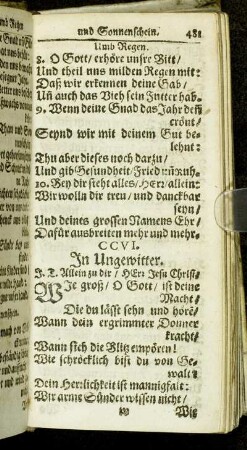 und Sonnenschein. 481
Umb Regen.
8. O Gott/ erhöre unsre Bitt/
Und theil uns milden Regen mit:
Daß wir erkennen deine Gab/
Uñ auch das Vieh sein Futter hab.
9. Wenn deine Gnad das Jahr den
krönt/
Seynd wir mit deinem Gut be-
lehnt:
Thu aber dieses noch darzu/
Und gib Gesundheit/ Fried uñ Ruh.
10. Bey dir steht alles/ Herr/ allein:
Wir wolln dir treu/ und danckbar
seyn/
Und deines grossen Namens Ehr/
Dafür ausbreiten mehr und mehr.
CCVI.
In Ungewitter.
J. T. Allein zu dir/ HErr Jesu Christ/
WJe groß/ O Gott/ ist deine
Macht/
Die du lässt sehn und hörẽ/
Wann dein ergrimmter Donner
kracht/
Wann sich die Blitz empören!
Wie schröcklich bist du von Ge-
walt!
Dein Herrlichkeit ist mannigfalt:
Wir arme Sünder wissen nicht/
Wiß